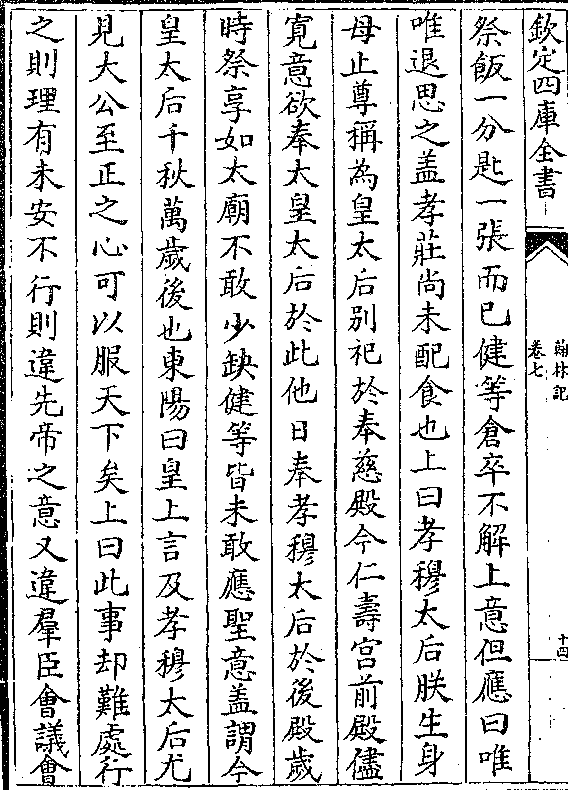 欽定四庫全書
翰林記
卷七
十四
祭飯一分匙一張而已健等倉卒不解上意但應曰唯
唯退思之盖孝莊尚未配食也上曰孝穆太后朕生身
母止尊稱為皇太后别祀於奉慈殿今仁壽宮前殿儘
寛意欲奉太皇太后於此他日奉孝穆太后於後殿歳
時祭享如太廟不敢少缺健等皆未敢應聖意盖謂今
皇太后千秋萬歳後也東陽曰皇上言及孝穆太后尤
見大公至正之心可以服天下矣上曰此事却難處行
之則理有未安不行則違先帝之意又違羣臣會議會